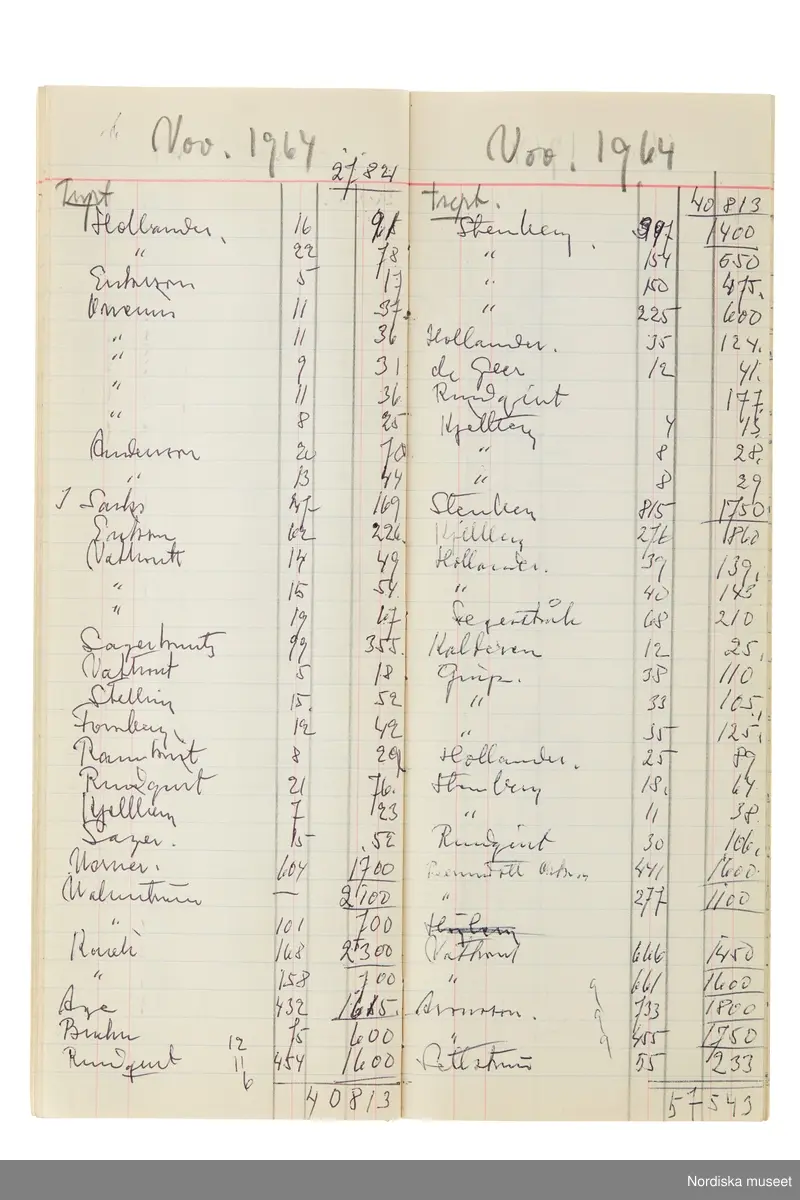 Nov. 1964
27821
Trspt
Hollander. 16 91
" 22 78
Erikson 5 17
11 37
" 11 36
" 9 31
" 11 36
" 8 25
Anderson 20 70
" 13 44
47 169
Erikson 62 226.
Vathout 14 49
" 15 54
" 19 67
99 355.
Vathout 5 18
Stelling 15. 52
Fornberg 12 42
8 29
Rundqvist 21 76.
Kjellberg 7 23
Sager. 15 52
Werner. 604 1700
Malmström — 2100
" 101 700
168 2300
" 158 700
432
Bruhn 75 600
Rundqvist 12 11 6 454 1600
40813
Nov. 1964
Trspt. 40813
Stenberg. 1400
" 154 650
" 150 475.
" 225 600
Hollander. 35 124.
de Geer 12 41.
Rundqvist 177.
Kjellberg 4 15.
" 8 28.
" 8 29
Stenberg 815 1750
Kjellberg 276 1860
Hollander. 39 139.
" 40 143
Segerstråle 68 210
12 25.
Grip. 38 110
" 33 105.
" 35 125.
Hollander. 25 89
Stenberg 18. 64
" 11 38.
Rundqvist 30 106.
441 1600.
" 277 1100
Vathout 666 1450
" 661 1600
Aronsson. 733 1800
" 455 1750
55 233
57543
Nordiska museet